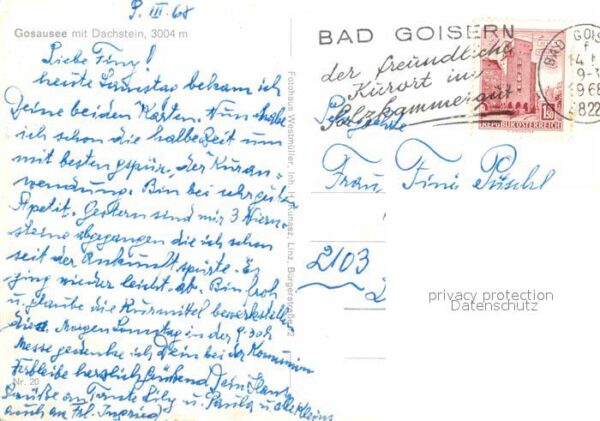 9. III. 68
Gosausee mit Dachstein, 3004 m
Liebe Finy!
heute Samstag bekam ich
Deine beiden Karten. Nun habe
ich schon die halbe Zeit um
mit besten gespür, der Kuran-
wendung. Bin bei sehr gutem
Apetit. Gestern sind mir 3 Nieren-
steine abgegangen die ich schon
seit der Ankunft spürte. Es
ging wieder leicht ab. Bin froh
u. glaube die Kurmittel bewerkstell.
dies. Morgen Sonntag in der 9.30h
Messe gedenke ich Dein bei der Kommunion
Verbleibe herzlich grüßend Dein
Grüße an Tante Lily u. Paula u. alle Kleins
auch an Frl. Ingried
Nr. 20
Fotohaus Westmüller, Inh. H. Kunasz, Linz, Bürgerstraße
BAD GOISERN
der freundliche
Kurort im
Salzkammergut
BAD GOIS
1968
4822
REPUBLIK ÖSTERREICH
Frau Fini Püschl
2103
privacy protection
Datenschutz